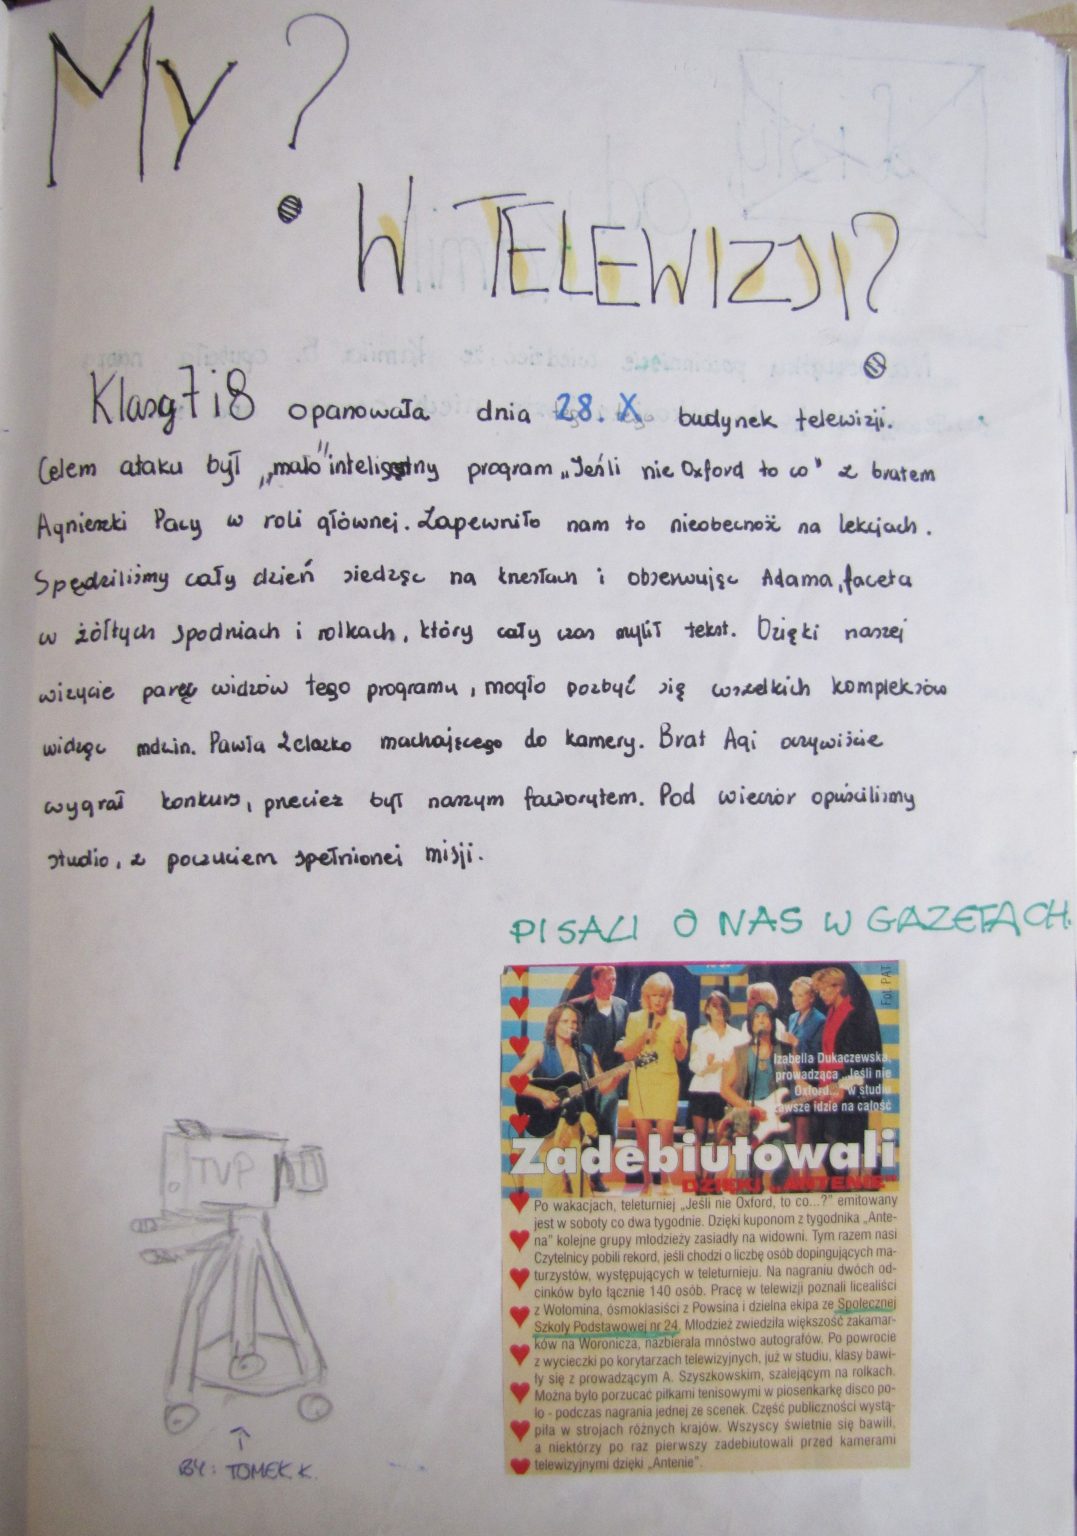 MY?
W TELEWIZJI?
Klasa 7 i 8 opanowała dnia 28.X budynek telewizji.
Celem ataku był „mało" inteligętny program „Jeśli nie Oxford to co" z bratem
Agnieszki Pacy w roli głównej. Zapewniło nam to nieobecność na lekcjach.
Spędziliśmy cały dzień siedząc na krzesłach i obserwując Adama, faceta
w żółtych spodniach i rolkach, który cały czas mylił tekst. Dzięki naszej
wizycie parę widzów tego programu, mogło pozbyć się wszelkich kompleksów
widząc mdzin. Pawła Żelazko machającego do kamery. Brat Agi oczywiście
wygrał konkurs, przecież był naszym faworytem. Pod wieczór opuściliśmy
studio, z poczuciem spełnionej misji.
PISALI O NAS W GAZETACH.
Fot. PAT
Izabella Dukaczewska,
prowadząca „Jeśli nie
Oxford..." w studiu
zawsze idzie na całość
Zadebiutowali
DZIĘKI „ANTENIE"
Po wakacjach, teleturniej „Jeśli nie Oxford, to co...?" emitowany
jest w soboty co dwa tygodnie. Dzięki kuponom z tygodnika „Ante-
na" kolejne grupy młodzieży zasiadły na widowni. Tym razem nasi
Czytelnicy pobili rekord, jeśli chodzi o liczbę osób dopingujących ma-
turzystów, występujących w teleturnieju. Na nagraniu dwóch od-
cinków było łącznie 140 osób. Pracę w telewizji poznali licealiści
z Wołomina, ósmoklasiści z Powsina i dzielna ekipa ze Społecznej
Szkoły Podstawowej nr 24. Młodzież zwiedziła większość zakamar-
ków na Woronicza, nazbierała mnóstwo autografów. Po powrocie
z wycieczki po korytarzach telewizyjnych, już w studiu, klasy bawi-
ły się z prowadzącym A. Szyszkowskim, szalejącym na rolkach.
Można było porzucać piłkami tenisowymi w piosenkarkę disco po-
lo - podczas nagrania jednej ze scenek. Część publiczności wystą-
piła w strojach różnych krajów. Wszyscy świetnie się bawili,
a niektórzy po raz pierwszy zadebiutowali przed kamerami
telewizyjnymi dzięki „Antenie".
TVP
BY: TOMEK K.